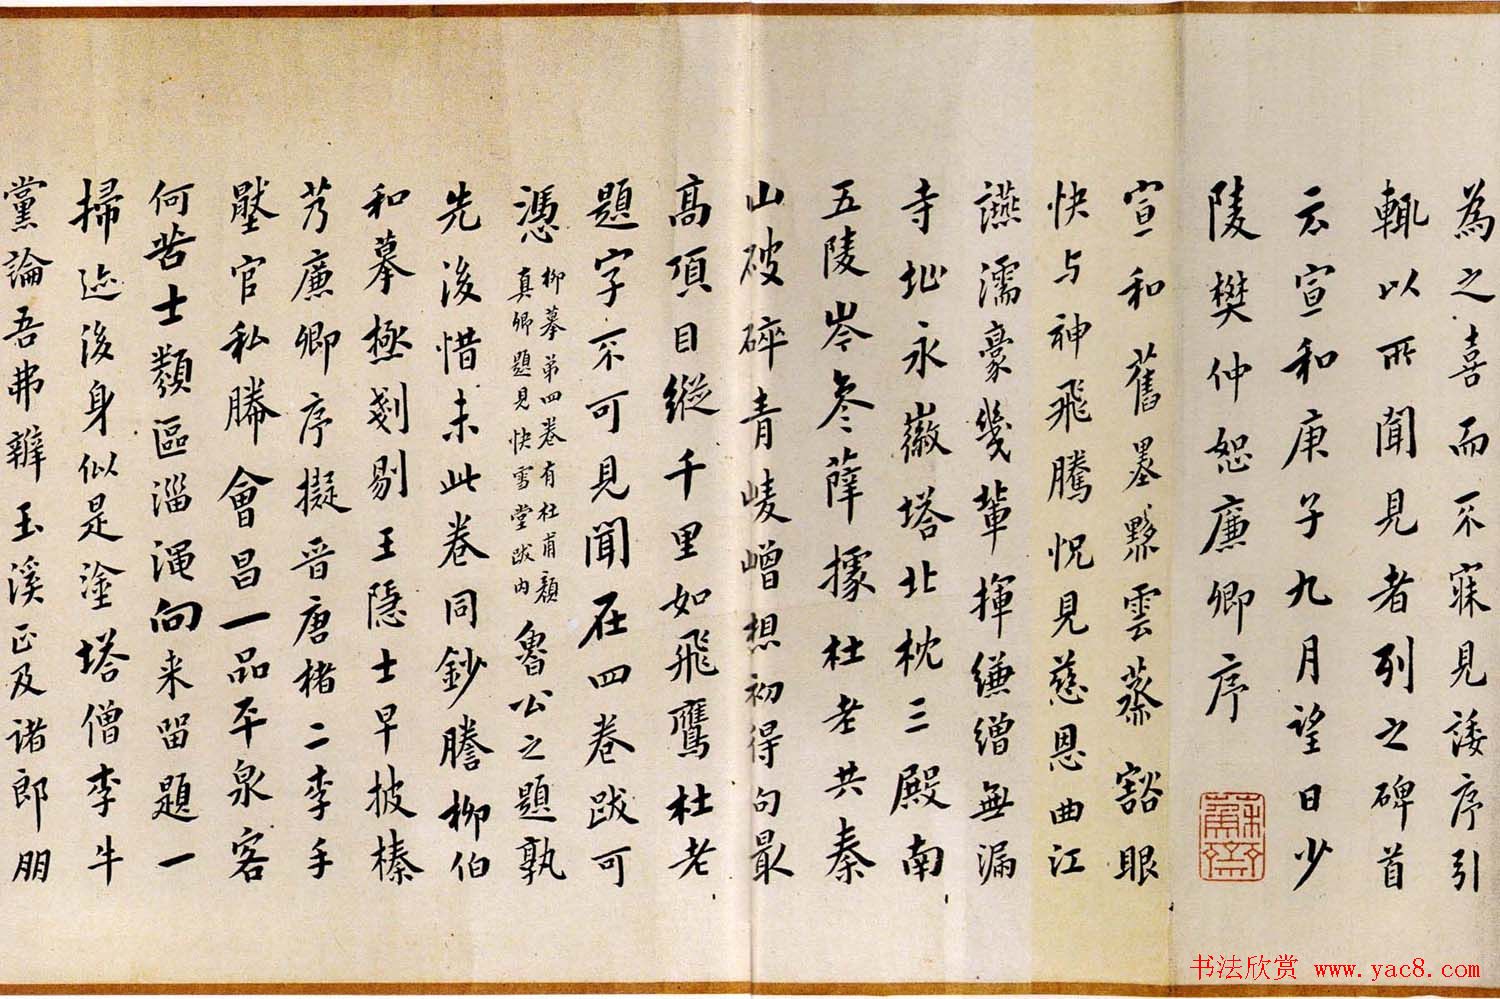 為之喜而不寐見諉序引
輒以所聞見者列之碑首
云宣和庚子九月望日少
陵樊仲恕廉卿序
宣和舊墨黟雲蒸豁眼
快与神飛騰怳見慈恩曲江
讌濡豪幾輩揮縑繒無漏
寺址永徽塔北枕三殿南
五陵岑參薛據杜老共秦
山破碎青崚嶒想初得句最
高頂目縱千里如飛鷹杜老
題字不可見聞在四卷跋可
憑
柳摹第四卷有杜甫顏
真卿題見快雪堂跋内
魯公之題孰
先後惜未此卷同鈔謄柳伯
和摹極剗剔王隱士早披榛
艻廉卿序擬晋唐楮二李手
壓官私勝會昌一品平泉客
何苦士類區淄渑向来留題一
掃迹後身似是塗塔僧李牛
黨論吾弗辨玉溪正及诸郎朋
书法欣赏 www.yac8.com